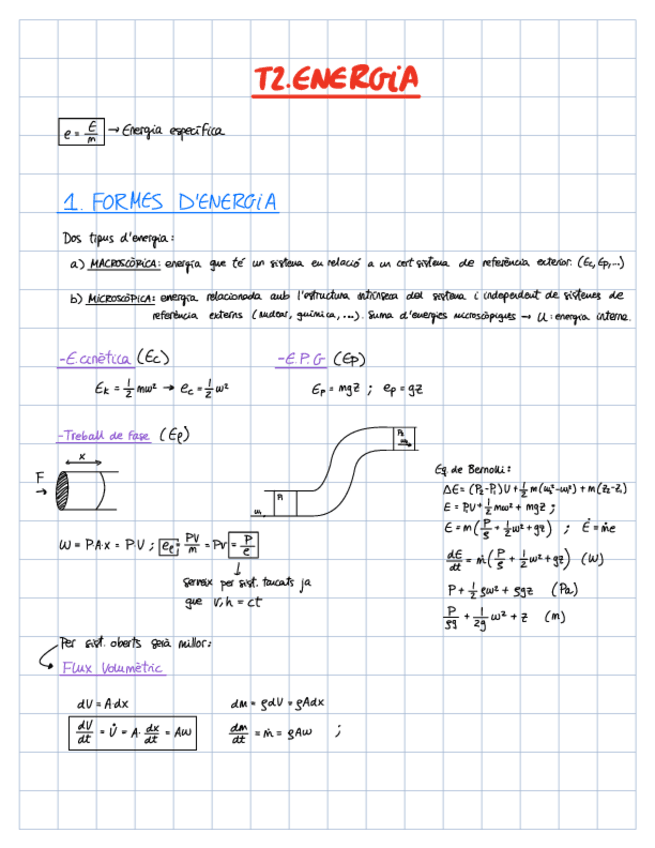 T2. ENERGiA
e = E/m → Energia específica
1. FORMES D'ENERGiA
Dos tipus d'energia:
a) MACROSCÒPICA: energia que té un sistema en relació a un cert sistema de referència exterior. (Ec, Ep,...)
b) MiCROSCÒPiCA: energia relacionada amb l'estructura intrínseca del sistema i independent de sistemes de
referència externs (nuclear, química, ...). Suma d'energies microscòpiques → U: energia interna.
-E.cinètica (Ec)
-E.P.G (Ep)
Ek = 1/2 mw² → ec = 1/2 w²
Ep = mgz ; ep = gz
-Treball de Fase (Ep)
x
F
P1
w1
P2
W = P·A·x = P·V ; = PV/m = Pv = P/ρ
↓
Serveix per sist. tancats ja
que V, h = ct
Eq. de Bernolli:
ΔE = (P2-P1)V + 1/2 m(w2²-w1²) + m(z2-z1)
E = P·V + 1/2 mw² + mgz ;
E = m(P/ρ + 1/2 w² + gz) ; Ė = ṁe
dE/dt = ṁ(P/ρ + 1/2 w² + gz) (W)
P + 1/2 ρw² + ρgz (Pa)
P/ρg + 1/2g w² + z (m)
Per sist. oberts serà millor:
Flux Volumètric
dV = A·dx
dM = ρdV = ρAdx
dV/dt = V̇ = A · dx/dt = Aw
dm/dt = ṁ = ρAw ;